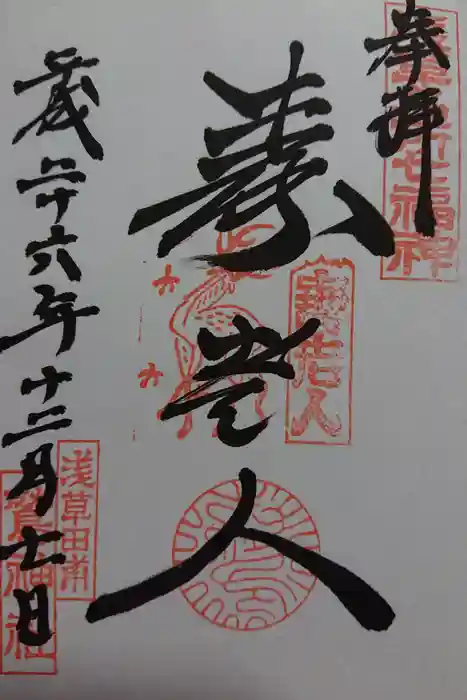 奉拝
浅草名所七福神
寿老人
寿老人
平成二十六年十二月七日
浅草田甫
鷲神社